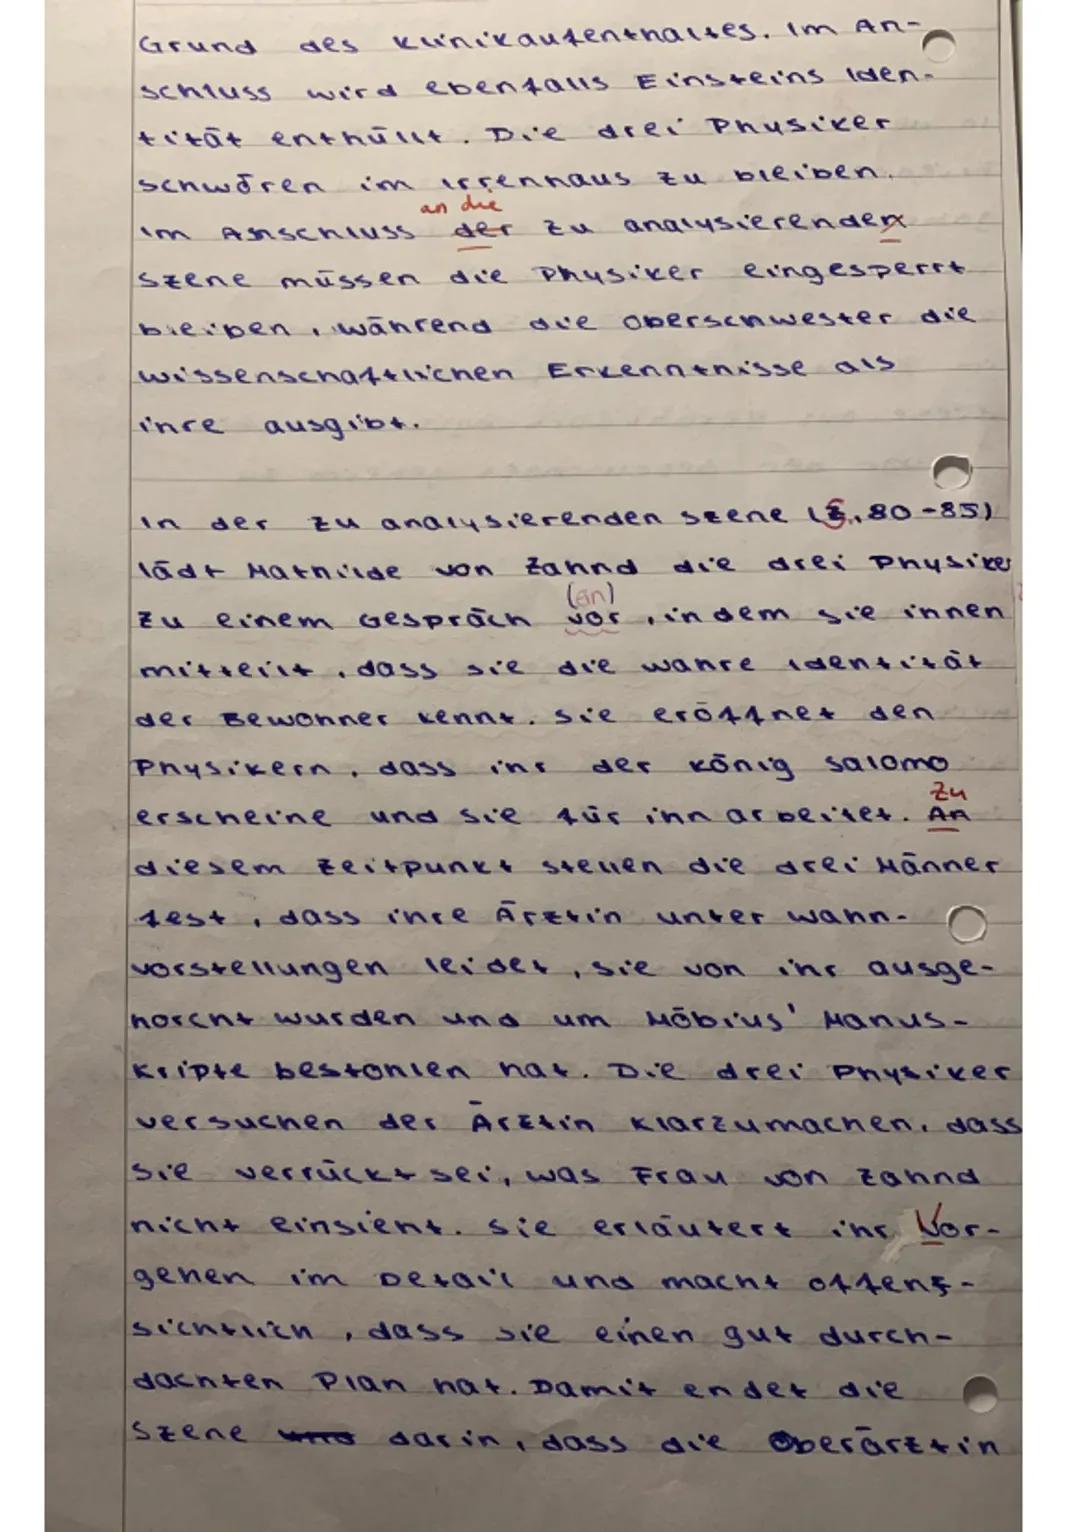 Grund des Klinikaufenthaltes. Im An-
schluss wird ebenfalls Einsteins Iden-
tität enthüllt. Die drei Physiker
schwören im Irrenhaus zu bleiben.
an die
Im Anschluss der zu analysierenden
Szene müssen die Physiker eingesperrt
bleiben, während die Oberschwester die
wissenschaftlichen Erkenntnisse als
ihre ausgibt.
In der zu analysierenden Szene (S. 80-85)
lädt Mathilde von Zahnd die drei Physiker
(ein)
zu einem Gespräch vor, indem sie ihnen
mitteilt, dass sie die wahre Identität
der Bewohner kennt. Sie eröffnet den
Physikern, dass ihr der König Salomo
Zu
erscheine und sie für ihn arbeitet. An
diesem Zeitpunkt stellen die drei Männer
fest, dass ihre Ärztin unter Wahn-
vorstellungen leidet, sie von ihr ausge-
horcht wurden und um Möbius' Manus-
kripte bestohlen hat. Die drei Physiker
versuchen der Ärztin klarzumachen, dass
sie verrückt sei, was Frau von Zahnd
nicht einsieht. Sie erläutert ihr Vor-
gehen im Detail und macht offens-
sichtlich, dass sie einen gut durch-
dachten Plan hat. Damit endet die
Szene darin, dass die Oberärztin